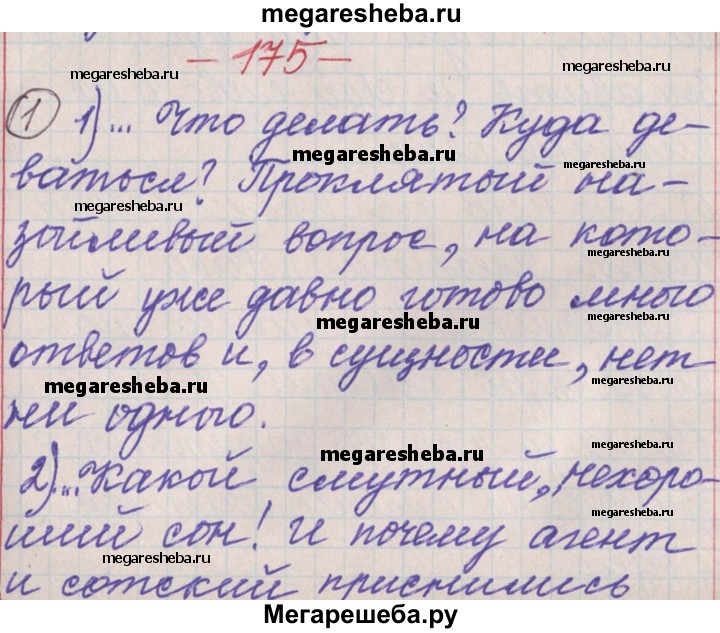 megaresheba.ru
- 175 -
megaresheba.ru megaresheba.ru
1 1)... Что делать? Куда де-
megaresheba.ru
ваться? Проклятый на-
megaresheba.ru
megaresheba.ru
зойливый вопрос, на кото-
megaresheba.ru
рый уже давно готово много
megaresheba.ru
ответов и, в сущности, нет
megaresheba.ru
megaresheba.ru
ни одного.
megaresheba.ru
2)... Какой смутный, нехоро-
megaresheba.ru
megaresheba.ru
ший сон! И почему агент
megaresheba.ru
и сотский приснились
Мегарешеба.ру